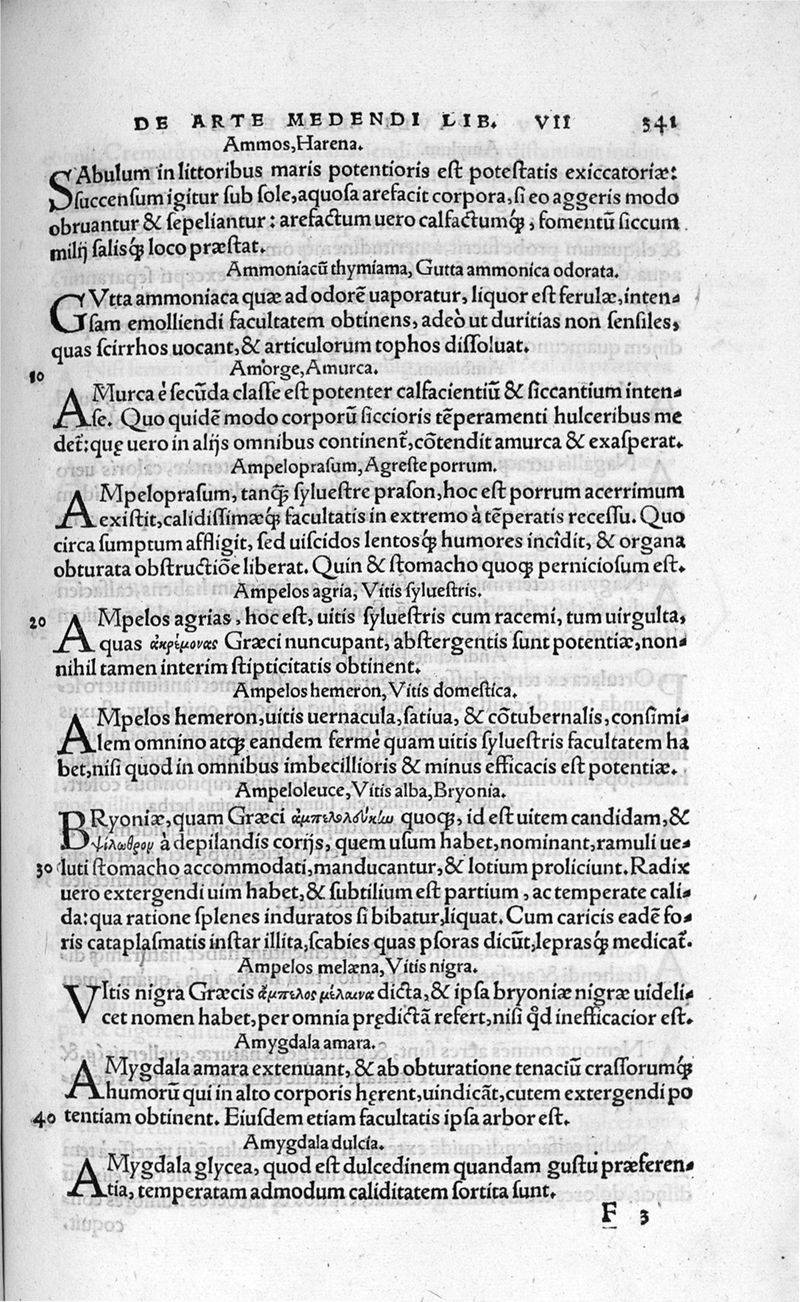 DE ARTE MEDENDI LIB. VII 341
Ammos, Harena.
SAbulum in littoribus maris potentioris est potestatis exiccatoriæ:
succensum igitur sub sole, aquosa arefacit corpora, si eo aggeris modo
obruantur & sepeliantur: arefactum uero calfactumq́;, fomentũ siccum
milij salisq́; loco præstat.
Ammoniacũ thymiama, Gutta ammonica odorata.
GVtta ammoniaca quæ ad odorẽ uaporatur, liquor est ferulæ, inten-
sam emolliendi facultatem obtinens, adeò ut duritias non sensiles,
quas scirrhos uocant, & articulorum tophos dissoluat.
10
Amorge, Amurca.
AMurca è secũda classe est potenter calfacientiũ & siccantium inten-
se. Quo quidẽ modo corporũ siccioris tẽperamenti hulceribus me
det̃: quę uero in alijs omnibus continent̃, cõtendit amurca & exasperat.
Ampeloprasum, Agreste porrum.
AMpeloprasum, tanq̃; syluestre prason, hoc est porrum acerrimum
existit, calidissimæq́; facultatis in extremo à tẽperatis recessu. Quo
circa sumptum affligit, sed uiscidos lentosq́; humores incîdit, & organa
obturata obstructiõe liberat. Quin & stomacho quoq; perniciosum est.
Ampelos agria, Vitis syluestris.
20 AMpelos agrias, hoc est, uitis syluestris cum racemi, tum uirgulta,
quas ἀκρέμονας Græci nuncupant, abstergentis sunt potentiæ, non-
nihil tamen interim stipticitatis obtinent.
Ampelos hemeron, Vitis domestica.
AMpelos hemeron, uitis uernacula, satiua, & cõtubernalis, consimi-
lem omnino atq; eandem fermè quam uitis syluestris facultatem ha
bet, nisi quòd in omnibus imbecillioris & minus efficacis est potentiæ.
Ampeloleuce, Vitis alba, Bryonia.
BRyoniæ, quam Græci ἀμπελολούκίω quoq;, id est uitem candidam, &
ψίλωθρου à depilandis corijs, quem usum habet, nominant, ramuli ue-
30 luti stomacho accommodati, manducantur, & lotium proliciunt. Radix
uero extergendi uim habet, & subtilium est partium, ac temperate cali-
da: qua ratione splenes induratos si bibatur, liquat. Cum caricis eadẽ fo-
ris cataplasmatis instar illita, scabies quas psoras dicũt, leprasq́; medicat̃.
Ampelos melæna, Vitis nigra.
VItis nigra Græcis ἄμπελος μέλαινα dicta, & ipsa bryoniæ nigræ uideli-
cet nomen habet, per omnia prędictã refert, nisi q̃d inefficacior est.
Amygdala amara.
AMygdala amara extenuant, & ab obturatione tenaciũ crassorumq́;
humorũ qui in alto corporis hęrent, uindicãt, cutem extergendi po
40 tentiam obtinent. Eiusdem etiam facultatis ipsa arbor est.
Amygdala dulcia.
AMygdala glycea, quod est dulcedinem quandam gustui præferen-
tia, temperatam admodum caliditatem sortita sunt.
F 3